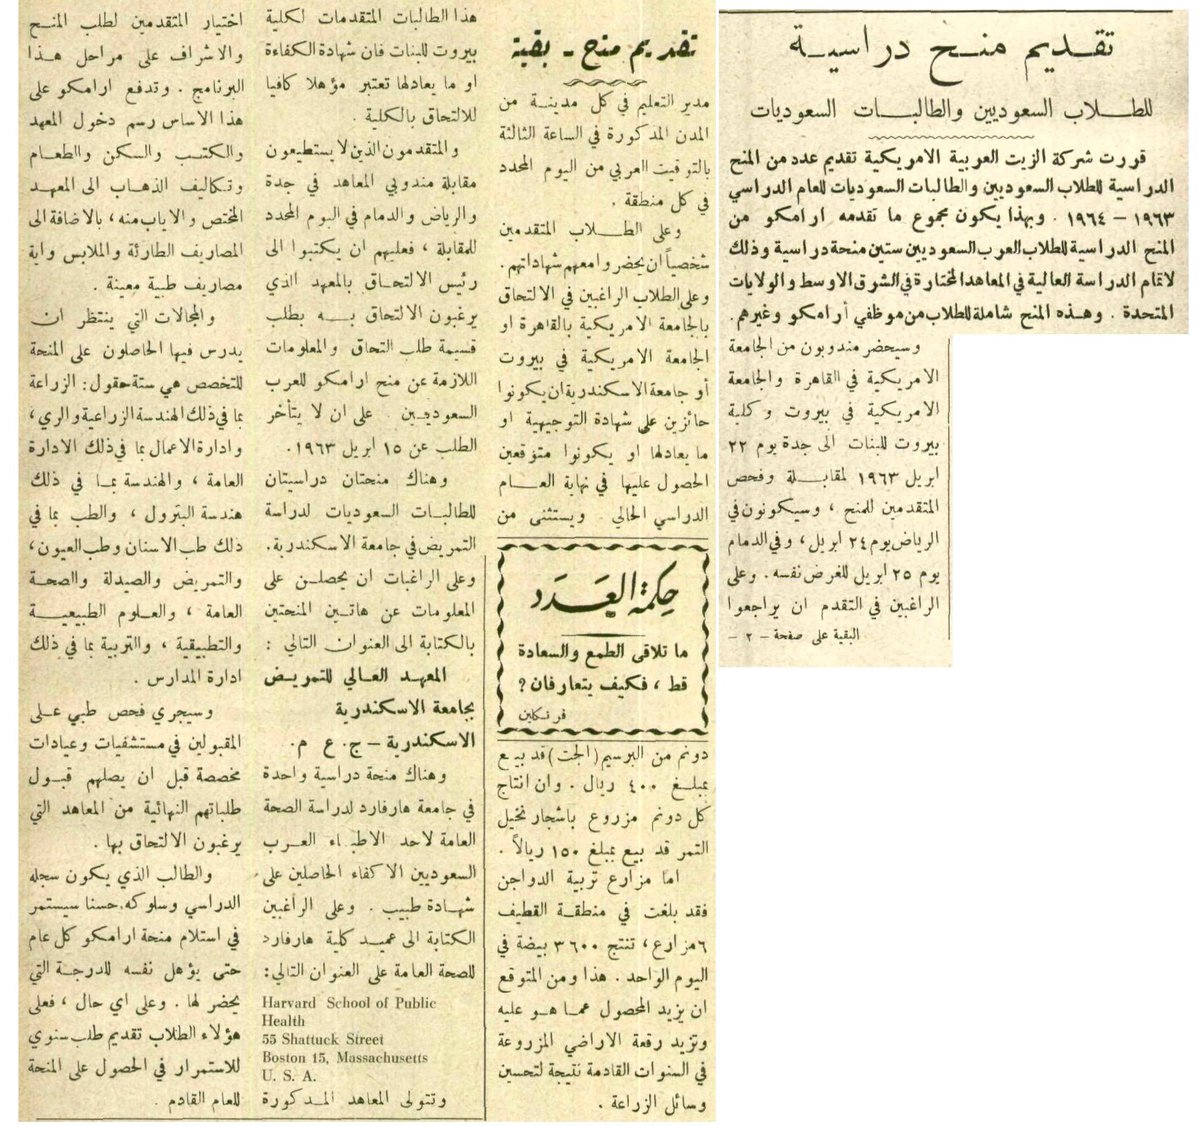 تقديم منح دراسية
للطلاب السعوديين والطالبات السعوديات
قررت شركة الزيت العربية الامريكية تقديم عدد من المنح
الدراسية للطلاب السعوديين والطالبات السعوديات للعام الدراسي
١٩٦٣ – ١٩٦٤ . وبهذا يكون مجموع ما تقدمه ارامكو من
المنح الدراسية للطلاب العرب السعوديين ستين منحة دراسية وذلك
لاتمام الدراسة العالية في المعاهد المختارة في الشرق الاوسط والولايات
المتحدة . وهذه المنح شاملة للطلاب من موظفي أرامكو وغيرهم.
وسيحضر مندوبون من الجامعة
الامريكية في القاهرة والجامعة
الامريكية في بيروت وكلية
بيروت للبنات الى جدة يوم ٢٢
ابريل ١٩٦٣ لمقابلة وفحص
المتقدمين للمنح ، وسيكونون في
الرياض يوم ٢٤ ابريل ، وفي الدمام
يوم ٢٥ ابريل للغرض نفسه. وعلى
الراغبين في التقدم ان يراجعوا
البقية على صفحة – ٢ –
تقديم منح – بقية
مدير التعليم في كل مدينة من
المدن المذكورة في الساعة الثالثة
بالتوقيت العربي من اليوم المحدد
في كل منطقة .
وعلى الطلاب المتقدمين
شخصياً ان يحضر وامعهم شهاداتهم.
وعلى الطلاب الراغبين في الالتحاق
بالجامعة الامريكية بالقاهرة او
الجامعة الامريكية في بيروت
أو جامعة الاسكندرية ان يكونوا
حائزين على شهادة التوجيهية او
ما يعادلها او يكونوا متوقعين
الحصول عليها في نهاية العام
الدراسي الحالي . ويستثنى من
حكمة العدد
ما تلاقى الطمع والسعادة
قط ، فكيف يتعارفان؟
فرنكلين
دونم من البرسيم (الجت) قد بيع
بمبلغ ٤٠٠ ريال . وان انتاج
كل دونم مزروع باشجار نخيل
التمر قد بيع بمبلغ ١٥٠ ريالاً .
اما مزارع تربية الدواجن
فقد بلغت في منطقة القطيف
٦ مزارع ، تنتج ٣٦٠٠ بيضة في
اليوم الواحد . هذا ومن المتوقع
ان يزيد المحصول عما هو عليه
وتزيد رقعة الاراضي المزروعة
في السنوات القادمة نتيجة لتحسين
وسائل الزراعة .
هذا الطالبات المتقدمات لكلية
بيروت للبنات فان شهادة الكفاءة
او ما يعادلها تعتبر مؤهلا كافيا
للالتحاق بالكلية .
والمتقدمون الذين لا يستطيعون
مقابلة مندوبي المعاهد في جدة
والرياض والدمام في اليوم المحدد
للمقابلة ، فعليهم ان يكتبوا الى
رئيس الالتحاق بالمعهد الذي
يرغبون الالتحاق به بطلب
قسيمة طلب التحاق والمعلومات
اللازمة عن منح ارامكو للعرب
السعوديين . على ان لا يتأخر
الطلب عن ١٥ ابريل ١٩٦٣.
وهناك منحتان دراسيتان
للطالبات السعوديات لدراسة
التمريض في جامعة الاسكندرية.
وعلى الراغبات ان يحصلن على
المعلومات عن هاتين المنحتين
بالكتابة الى العنوان التالي :
المعهد العالي للتمريض
بجامعة الاسكندرية
الاسكندرية – ج. ع م.
وهناك منحة دراسية واحدة
في جامعة هارفارد لدراسة الصحة
العامة لاحد الاطباء العرب
السعوديين الاكفاء الحاصلين على
شهادة طبيب . وعلى الراغبين
الكتابة الى عميد كلية هارفارد
للصحة العامة على العنوان التالي:
Harvard School of Public
Health
55 Shattuck Street
Boston 15, Massachusetts
U. S. A.
وتتولى المعاهد المذكورة
اختيار المتقدمين لطلب المنح
والاشراف على مراحل هذا
البرنامج . وتدفع ارامكو على
هذا الاساس رسم دخول المعهد
والكتب والسكن والطعام
وتكاليف الذهاب الى المعهد
المختص والاياب منه ، بالاضافة الى
المصاريف الطارئة والملابس واية
مصاريف طبية معينة .
والمجالات التي ينتظر ان
يدرس فيها الحاصلون على المنحة
للتخصص هي ستة حقول : الزراعة
بما في ذلك الهندسة الزراعية والري ،
وادارة الاعمال بما في ذلك الادارة
العامة ، والهندسة بما في ذلك
هندسة البترول ، والطب بما في
ذلك طب الاسنان وطب العيون ،
والتمريض والصيدلة والصحة
العامة ، والعلوم الطبيعية
والتطبيقية ، والتربية بما في ذلك
ادارة المدارس .
وسيجري فحص طبي على
المقبولين في مستشفيات وعيادات
مخصصة قبل ان يصلهم قبول
طلباتهم النهائية من المعاهد التي
يرغبون الالتحاق بها .
والطالب الذي يكون سجله
الدراسي وسلوكه حسنا سيستمر
في استلام منحة ارامكو كل عام
حتى يؤهل نفسه للدرجة التي
يحضر لها . وعلى اي حال ، فعلى
هؤلاء الطلاب تقديم طلب سنوي
للاستمرار في الحصول على المنحة
للعام القادم .